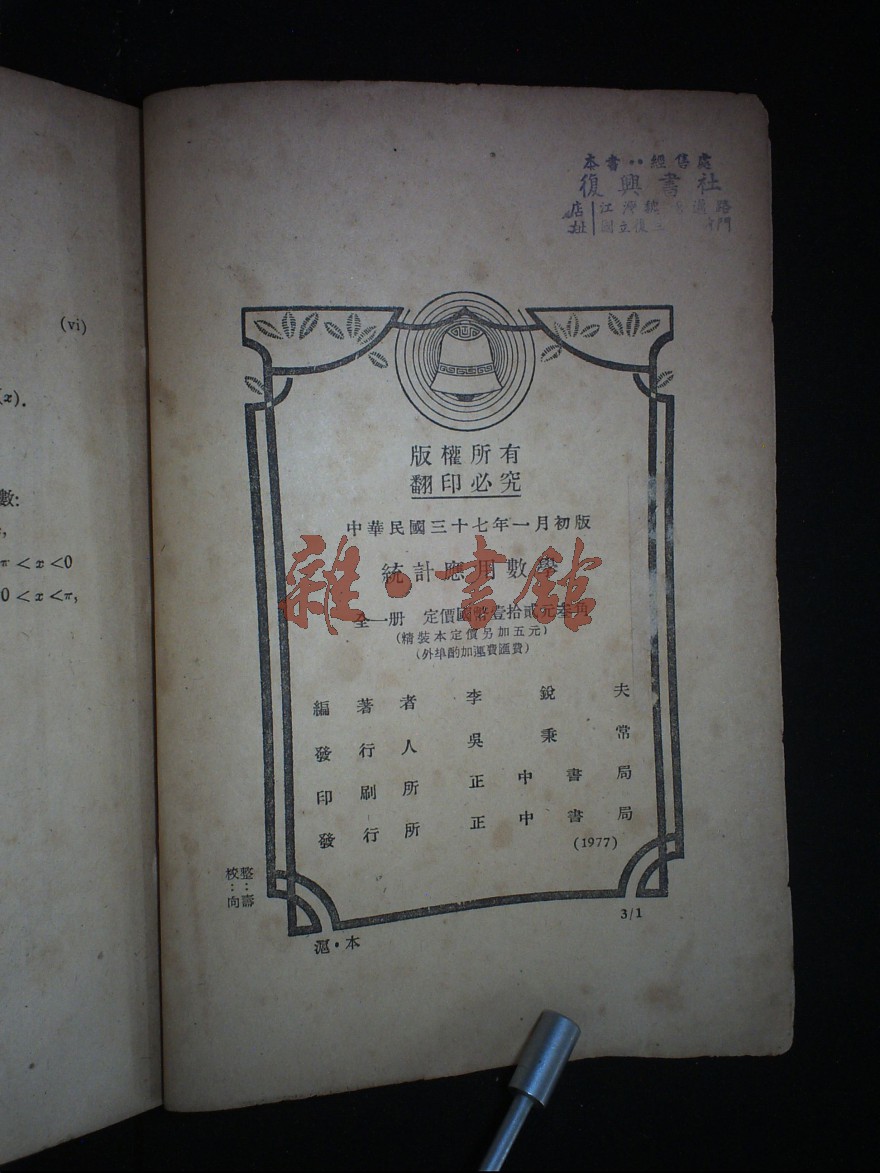 本書··經售處
復興書社
店址
(vi)
(x).
數:
π < x < 0
0 < x < π,
版權所有
翻印必究
中華民國三十七年一月初版
統計應用數學
全一册 定價國幣壹拾貳元壹角
(精裝本定價另加五元)
(外埠酌加運費匯費)
雜·書館
編著者 李銳夫
發行人 吳秉常
印刷所 正中書局
發行所 正中書局
(1977)
校:向
整:壽
滬·本
3/1